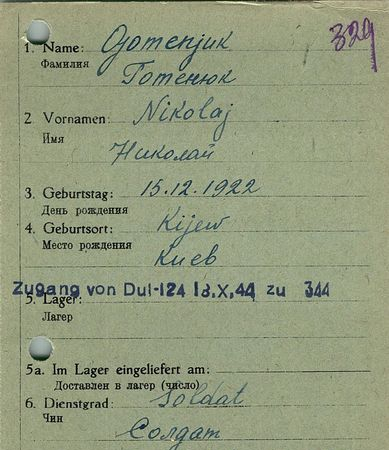 329
1. Name: Gotenjuk
Фамилия Готенюк
2 Vornamen: Nikolaj
Имя
Николай
3. Geburtstag: 15.12.1922
День рождения
4. Geburtsort: Kijew
Место рождения
Киев
Zugang von Dul-124 18.X.44 zu 344
5. Lager:
Лагер
5a. Im Lager eingeliefert am:
Доставлен в лагер (число)
6. Dienstgrad: Soldat
Чин
Солдат